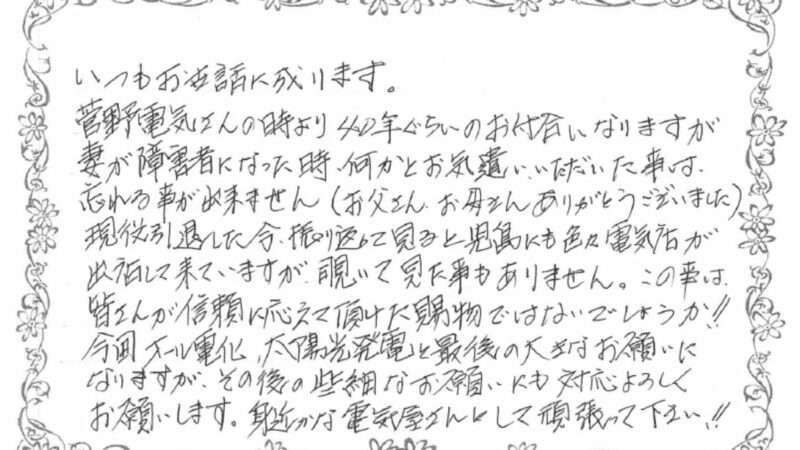 いつもお世話に成ります。
菅野電気さんの時より40年ぐらいのお付合いなりますが
妻が障害者になった時、何かとお気遣い、いただいた事は、
忘れる事が出来ません(お父さん、お母さんありがとうございました)
現役引退した今、振り返って見ると児島にも色々電気店が
出店して来ていますが、覗いて見た事もありません。この事は、
皆さんが信頼に応えて頂けた賜物ではないでしょうか!!
今回オール電化、太陽光発電と最後の大きなお願いに
なりますが、その後の些細なお願いにも対応よろしく
お願いします。身近かな電気屋さんとして頑張って下さい!!